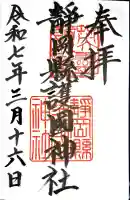 奉拝
靜岡縣護國神社
令和七年三月十六日